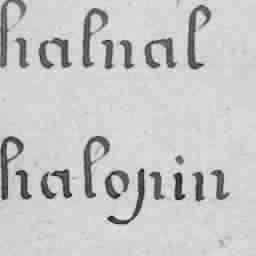 halnal
halopin